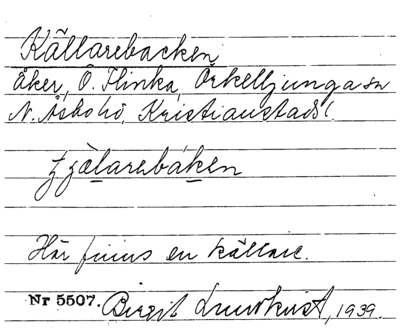 Källarebacken
Åker, Ö. Flinka, Örkelljunga sn
N. Åsbo hd, Kristianstads l.
källarebáken
Här finns en källare.
Nr 5507. Birgit Lundkvist, 1939.